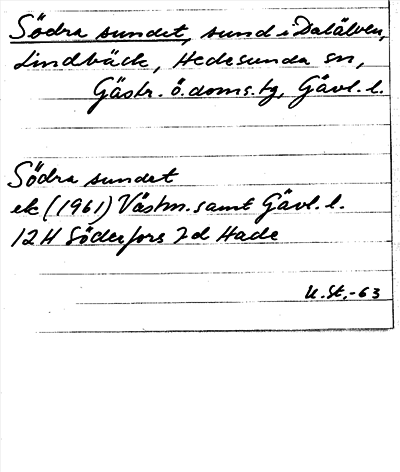 Södra sundet, sund i Dalälven,
Lindbäck, Hedesunda sn,
Gästr. ö. doms. tg, Gävl. l.
Södra sundet
ek (1961) Västm. samt Gävl. l.
12H Söderfors 7d Hade
U. St. -63